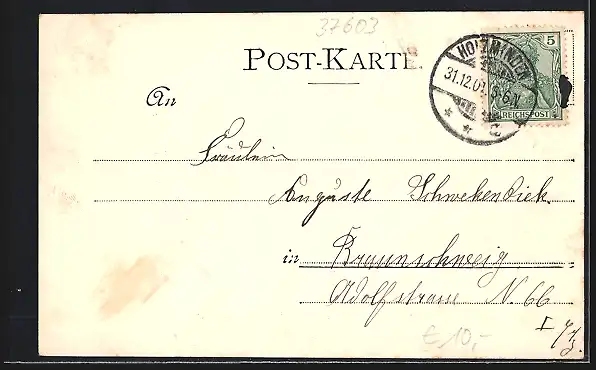 37603
POST-KARTE.
HOLZMINDEN
31.12.01. 5-6 N
5
REICHSPOST
An
Fräulein
Auguste Schwekendiek.
in Braunschweig
Adolfstrasse N. 66
€ 10,-